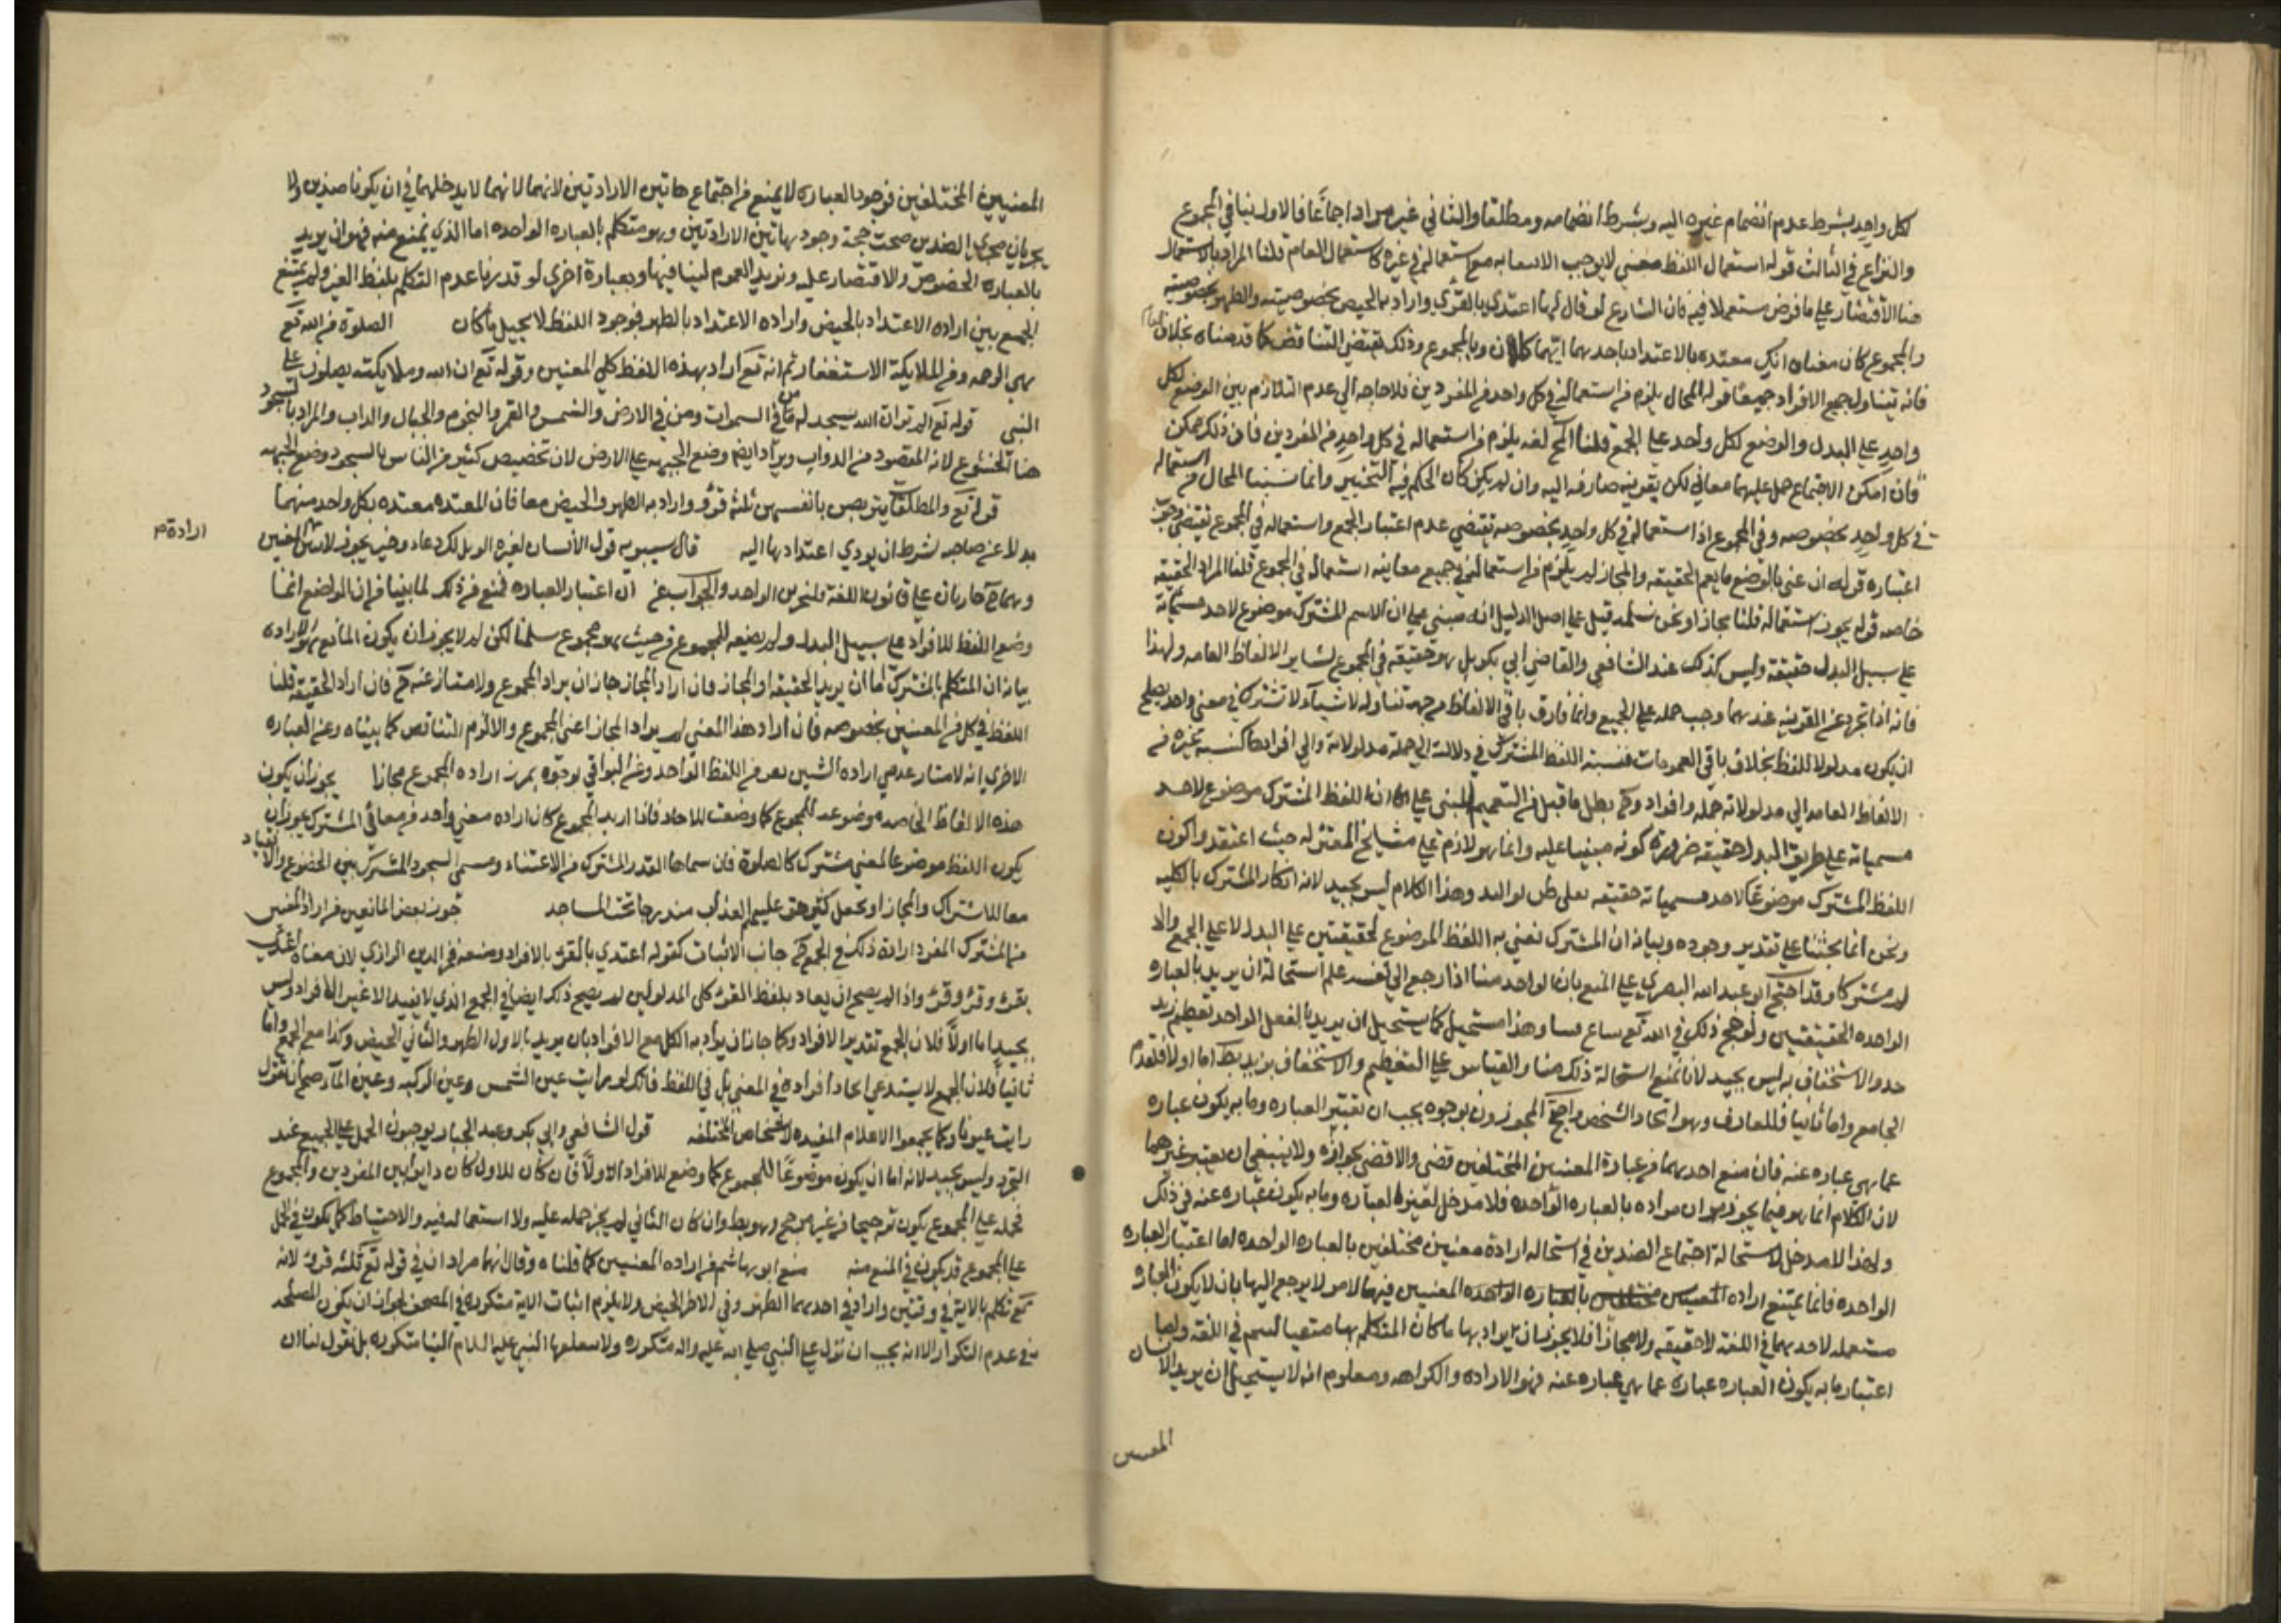 لكل واحد بشرط عدم انضمام غيره اليه وبشرط انضمامه ومطلقا والثاني غير مراد اجماعا فالاول ينافي المجموع
والنزاع في الثالث قوله استعمال اللفظ معنى لا يوجب الاستعمال به مع استعماله في غيره كاستعمال العام قلنا المراد بالاستعمال
هنا الاقتصار على ما فرض مستعملا فيه فان الشارع لو قال لها اعتدي بالقرء واراد به الحيض بخصوصيته والطهر بخصوصيته
والمجموع كان معناه انك معتده بالاعتداد باحدهما ايهما كان وبالمجموع وذلك يقتضي التناقض كما قدمناه بخلاف العام
فانه يتناول جميع الافراد جميعا قوله المحال يلزم من استعماله في كل واحد من المفردين فلا حاجه الى عدم التلازم بين الوضع لكل
واحد على البدل والوضع لكل واحد على الجمع قلنا يلزم من استعماله في كل واحد من المفردين فان ذلك ممكن
فان امكن الاجتماع حمل عليهما معا لكن بقرينه صارفه اليه وان لم يكن كان الحكم فيه التخيير وانما نسبنا المحال من استعماله
في كل واحد بخصوصه وفي المجموع اذ استعماله في كل واحد بخصوصه يقتضي عدم اعتبار الجمع واستعماله في المجموع يقتضي وجوب
اعتباره قوله ان عنى بالوضع ما يعم الحقيقه والمجاز لم يلزم من استعماله في جميع معانيه استعماله في المجموع قلنا المراد الحقيقه
خاصه قوله يجوز استعماله قلنا مجازا ونحن نسلمه قيل على اصل الدليل انه مبني على ان الاسم المشترك موضوع لاحد مسمياته
على سبيل البدل حقيقة وليس كذلك عند الشافعي والقاضي ابي بكر بل هو حقيقه في المجموع كساير الالفاظ العامه ولهذا
فانه اذا تجرد عن القرينه عندهما وجب حمله على الجميع وانما فارق باقي الالفاظ من جهة تناوله لاشياء لا تشترك في معنى واحد يصلح
ان يكون مدلولا للفظ بخلاف باقي العمومات فنسبة اللفظ المشترك في دلالته الى جملة مدلولاته والى افرادها كنسبة غيره من
الالفاظ العامه الى مدلولاته جمله وافراد وح بطل ما قيل من التعميم المبني على ان اللفظ المشترك موضوع لاحد
مسمياته على طريق البدل حقيقه ضرورة كونه مبنيا عليه وانما هو لازم على مشايخ المعتزله حيث اعتقدوا كون
اللفظ المشترك موضوعا لاحد مسمياته حقيقه على البدل وهذا الكلام ليس بجيد لانه انكار المشترك بالكليه
ونحن انما بحثنا على تقدير وجوده وبيانه ان المشترك نعني به اللفظ الموضوع لحقيقتين على البدل لا على الجمع والا
لم مشتركا وقد احتج ابو عبد الله البصري على المنع بان الواحد منا اذا رجع الى نفسه علم استحالة ان يريد بالعباره
الواحده الحقيقتين ولو صح ذلك في الله تع وهذا مستحيل كما يستحيل ان يريد بالفعل الواحد تعظيم زيد
والاستخفاف به ليس بجيد لانا نمنع استحالة ذلك منا والقياس على التعظيم والاستخفاف اما اولا فلعدم
الجامع واما ثانيا فللمعارف وهو اتحاد الشخص واحتج المجوزون بوجوه يجب ان نعتبر العباره وما به يكون عباره
عما هي عباره عنه فان منع احدهما من عبارة المعنيين المختلفين قضى والا قضى بجوازه ولا ينبغي ان يعتبر غيرهما
لان الكلام انما هو فيما يجوز ان مراده بالعباره الواحده فلا مدخل لغير العباره وما به يكون عباره عنه في ذلك
ولهذا لا مدخل لاستحالة اجتماع الضدين في استحاله ارادة معنيين مختلفين بالعباره الواحده اما اعتبار العباره
الواحده فانما يمتنع اراده بالعباره الواحده المعنيين فيها لامور لا يرجع اليها بان لا يكون العباره
مستعمله لاحدهما في اللغه لا حقيقه ولا مجازا فلا يجوز ان يراد بها ما كان المتكلم بها متعيا في اللغه
اعتبار ما به يكون العباره عباره عما هي عباره عنه فهو الاراده والكراهه ومعلوم انه لا يستحيل ان يريد الانسان
المعنيين
المعنيين المختلفين فوجود العباره لا يمنع من اجتماع هاتين الارادتين لانهما لا يدخلهما في ان يكونا ضدين ولا
يجريان مجرى الضدين صحت وجود هاتين الارادتين وهو متكلم بالعباره الواحده اما الذي يمنع منه فهو ان يريد
بالعباره الخصوص والاقتصار عليه ونريد العموم لتنافيها وبعبارة اخرى لو قدرنا عدم التكلم بلفظ القرء لم يمتنع
الجمع بين اراده الاعتداد بالحيض واراده الاعتداد بالطهر فوجود اللفظ لا يحيل ما كان الصلوة من الله تع
هي الرحمه ومن الملايكة الاستغفار ثم انه تع اراد بهذه اللفظ كلي المعنيين وقوله تع ان الله وملايكته يصلون على
النبي قوله تع الم تر ان الله يسجد له من في السموات ومن في الارض والشمس والقمر والنجوم والجبال والدواب والمراد بالسجود
هنا الخشوع لانه المقصود من الدواب ويراد ايضا وضع الجبهه على الارض لان تخصيص كثير من الناس بالسجود وضع الجبهه
قوله تع والمطلقات يتربصن بانفسهن ثلثة قروء واراد به الطهر والحيض معا فان المعتده معتده بكل واحد منهما
بدلا عن صاحبه بشرط ان يودي اعتدادها اليه قال سيبويه قول الانسان لغيره الويل لك دعاء وخبر
ارادة م
وهما جاريان على قانون اللغة والجواب عن ان اعتبار العباره نمنع من ذلك لما بينا من ان الواضع انما
وضع اللفظ للافراد على سبيل البدل ولم يضعه للمجموع من حيث هو مجموع سلمنا لكن لم لا يجوز ان يكون المانع هو الاراده
بيانه ان المتكلم بالمشترك اما ان يريد الحقيقه او المجاز فان اراد المجاز جاز ان يراد المجموع ولا منازعه ح فان اراد الحقيقه قلنا
اللفظ في كل من المعنيين بخصوصه فان اراد هذا المعنى لم يرد المجاز اعني المجموع والا لزم التناقض كما بيناه وعن العباره
الاخرى انه لا امتناع في اراده الشيئين من اللفظ الواحد وعن البواقي بوجوه اراده المجموع مجازا يجوز ان يكون
هذه الالفاظ الخاصه موضوعه للمجموع كما وضعت للاحاد فاذا اريد المجموع كان اراده معنى واحد من معاني المشترك يجوز ان
يكون اللفظ موضوعا لمعنى مشترك كالصلوة فان مسماها القدر المشترك من الاعتناء ومسمى السجود المشترك بين الخضوع والانقياد
معا للاشتراك والمجاز او يجعل كثير حق عليهم العذاب مندرجا تحت الساجد جوز بعض المانعين من اراد المعنيين
من المشترك المفرد ارادة ذلك في الجمع في جانب الاثبات كقوله اعتدي بالقرء بالافراد ومنعه فخر الدين الرازي لان معناه اعتدي
بقرء وقرء وقرء واذا لم يصح ان يفاد بلفظ القرء كلى المدلولين لم يصح ذلك ايضا في الجمع الذي لا يفيد الا عين الافراد وليس
بجيد اما اولا فلان الجمع تقدير الافراد وكما جاز ان يراد به الكل مع الافراد بان يريد بالاول الطهر والثاني الحيض وكذا مع الجمع واما
ثانيا فلان الجمع لا يستدعي اتحاد افراده في المعنى بل في اللفظ فانك لو رايت عين الشمس وعين الركبه وعين الماء صح ان تقول
رايت عيونا وكما يجمعوا الاعلام المفيده لاشخاص مختلفه قول الشافعي وابي بكر وعبد الجبار يوجبون الحمل على الجميع عند
التجرد وليس بجيد لانه اما ان يكون موضوعا للمجموع كما وضع للافراد او لا فان كان للاول كان دايرا بين المفردين والمجموع
فحمله على المجموع يكون ترجيحا من غير مرجح وهو بط وان كان الثاني لم يجز حمله عليه ولا استعماله فيه والاحتياط كما يكون في الحمل
على المجموع قد يكون في المنع منه منع ابو هاشم من اراده المعنيين كما قلناه وقال انهما مرادان في قوله تع ثلثة قروء لانه
تع تكلم بالاية في وقتين واراد في احدهما الطهر وفي الاخر الحيض ولا يلزم اثبات الاية متكرره في المصحف لجواز ان يكون المصلحه
في عدم التكرار الا انه يجب ان تنزل على النبي صلى الله عليه واله متكرره ولا ينقلها النبي عليه السلام الينا متكرره بل نقول لنا ان